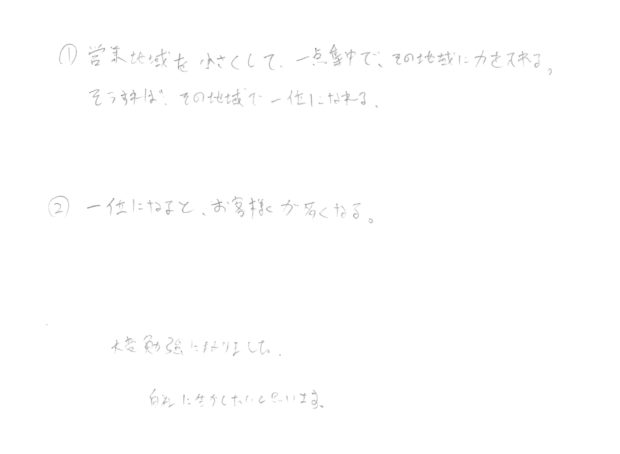 ① 営業地域を小さくして、一点集中で、その地域に力を入れる。
そうすれば、その地域で一位になれる。
② 一位になると、お客様が多くなる。
大変勉強になりました。
自社に生かしたいと思います。